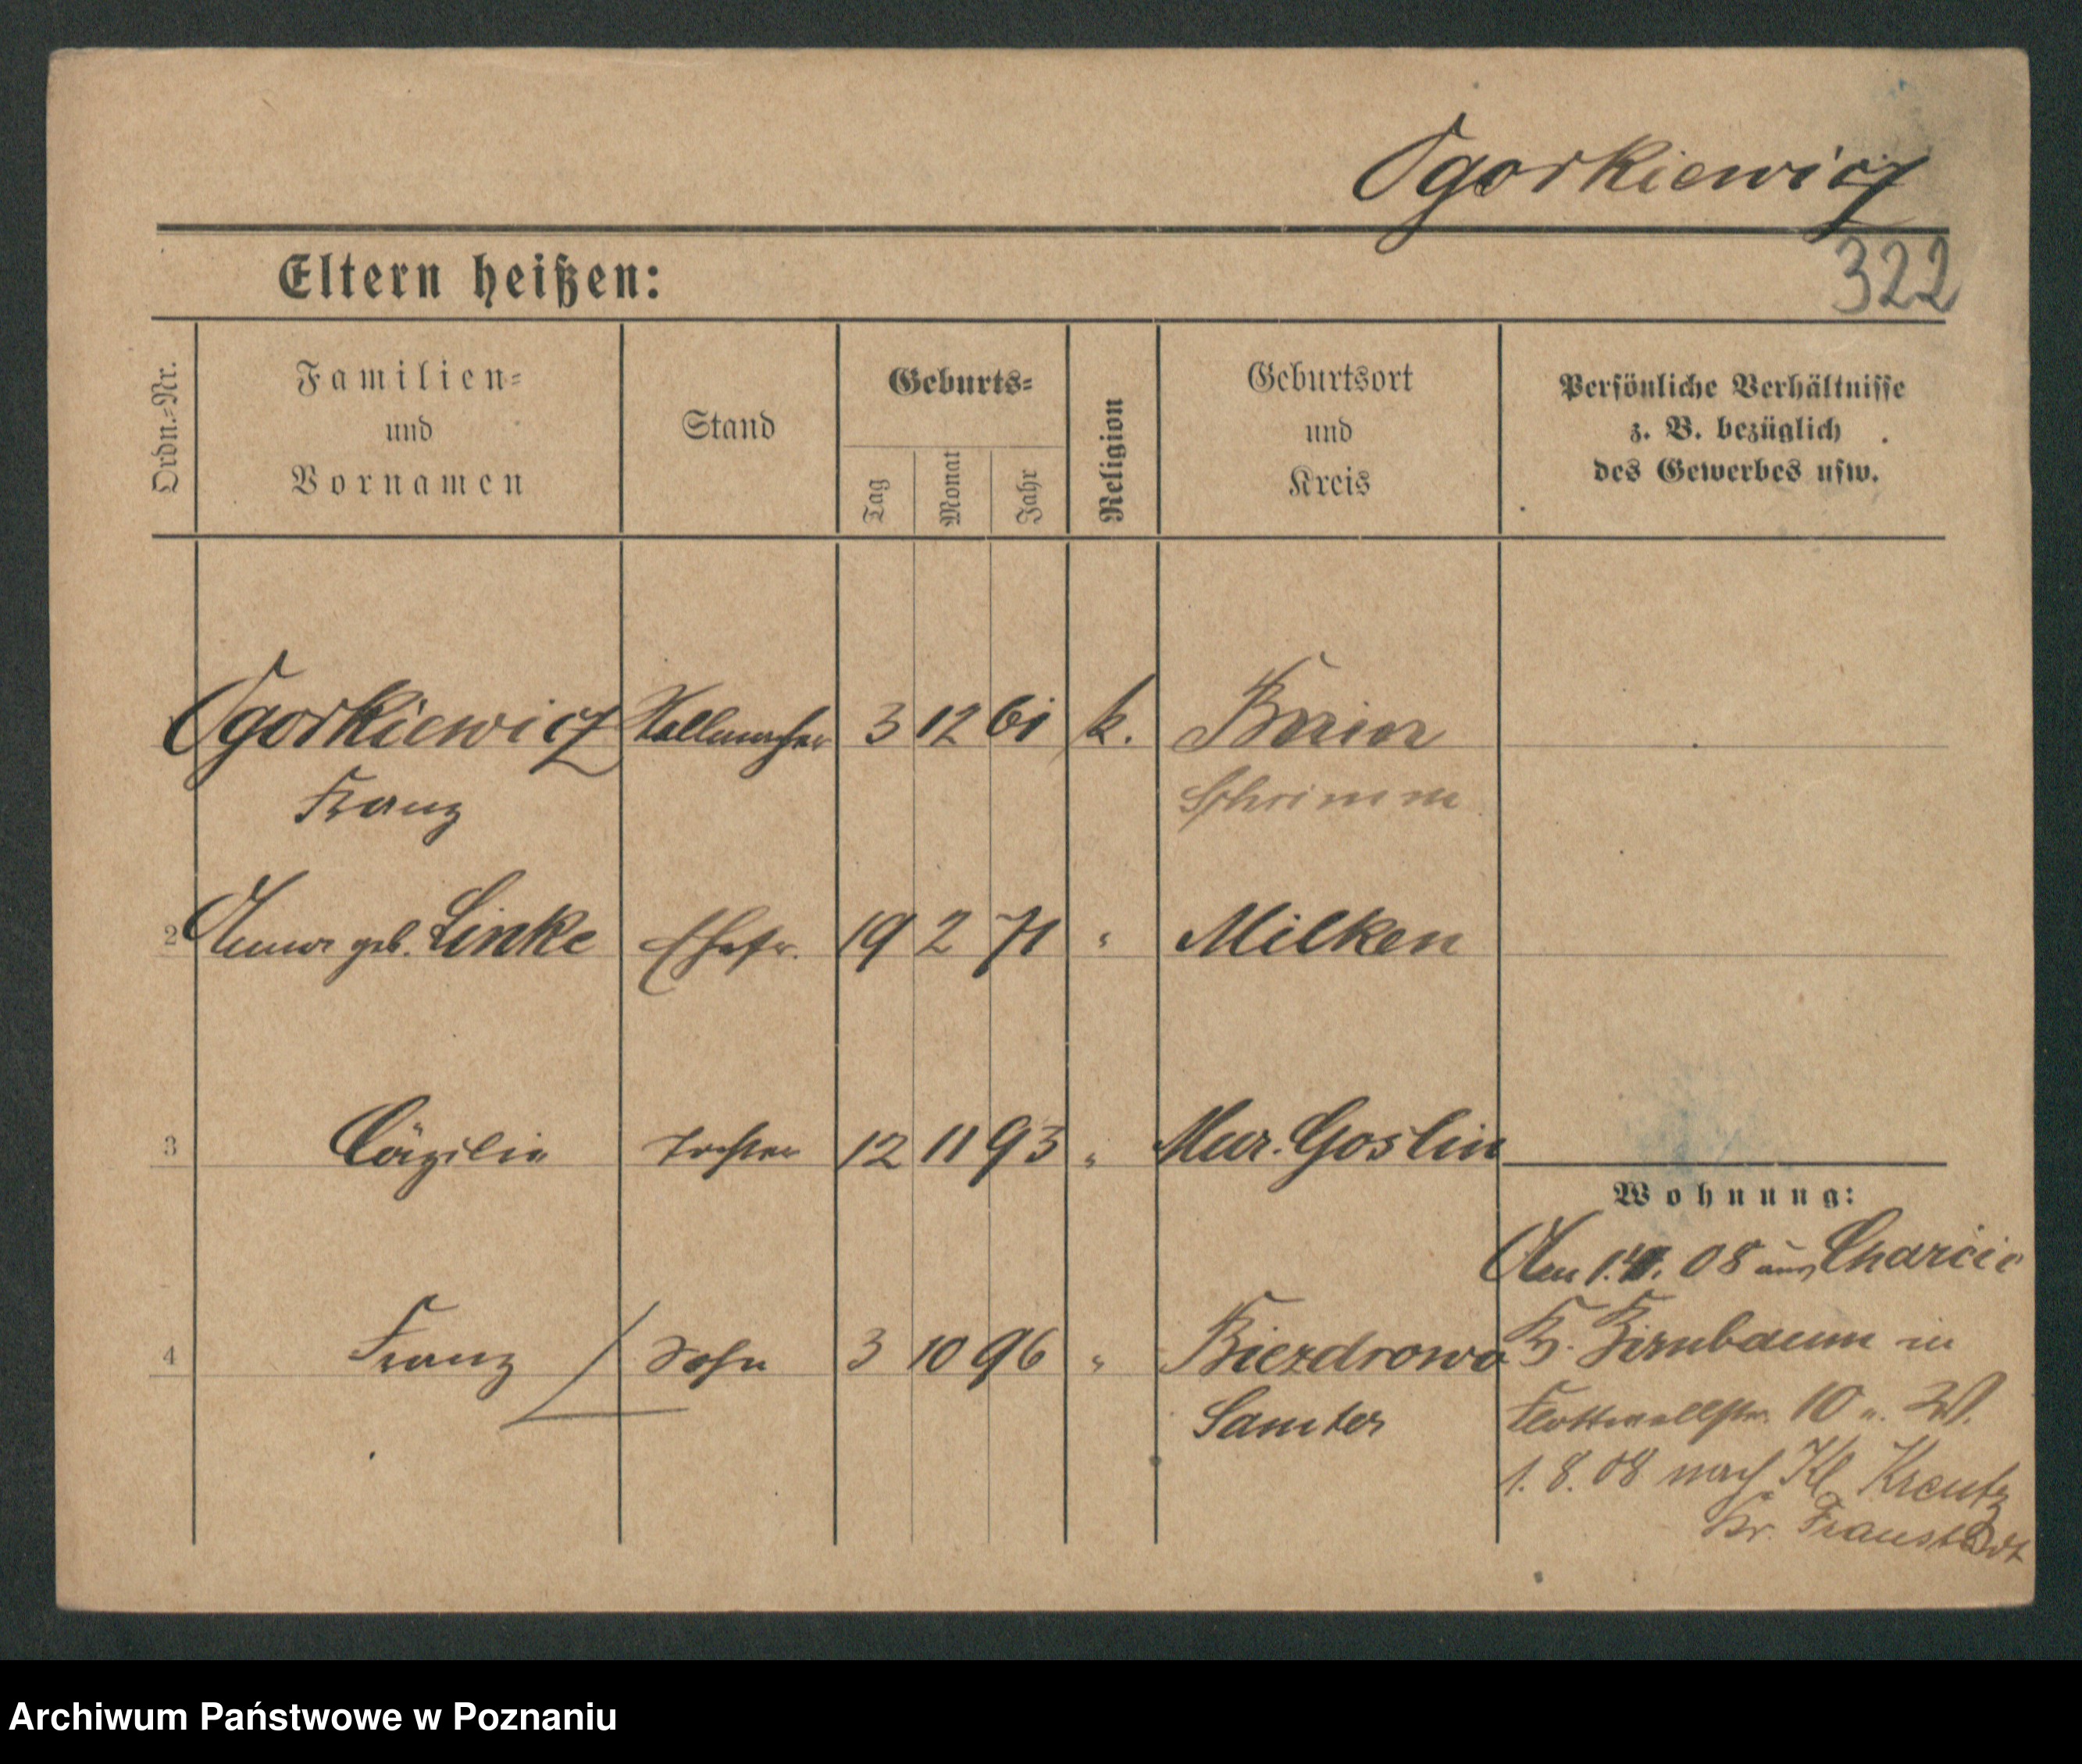 Ogorkiewicz
322
Eltern heißen:
Ordn.-Nr.
Familien- und Vornamen
Stand
Geburts-
Tag
Monat
Jahr
Religion
Geburtsort und Kreis
Persönliche Verhältnisse
z. B. bezüglich
des Gewerbes usw.
Ogorkiewicz 3 12 61 k. Bnin
Franz Schrimm
2 Anna geb. Linke Ehefr. 19 2 71 " Milken
3 Cäzilie Tochter 12 11 93 " Mur. Goslin
Wohnung:
08 aus Charcic
4 Franz Sohn 3 10 96 " Biezdrowo
Kr. Birnbaum in
Samter
Flottwellstr. 10 n. W.
1. 8. 08 nach Kl. Kreutz
Kr. Fraustadt
Archiwum Państwowe w Poznaniu